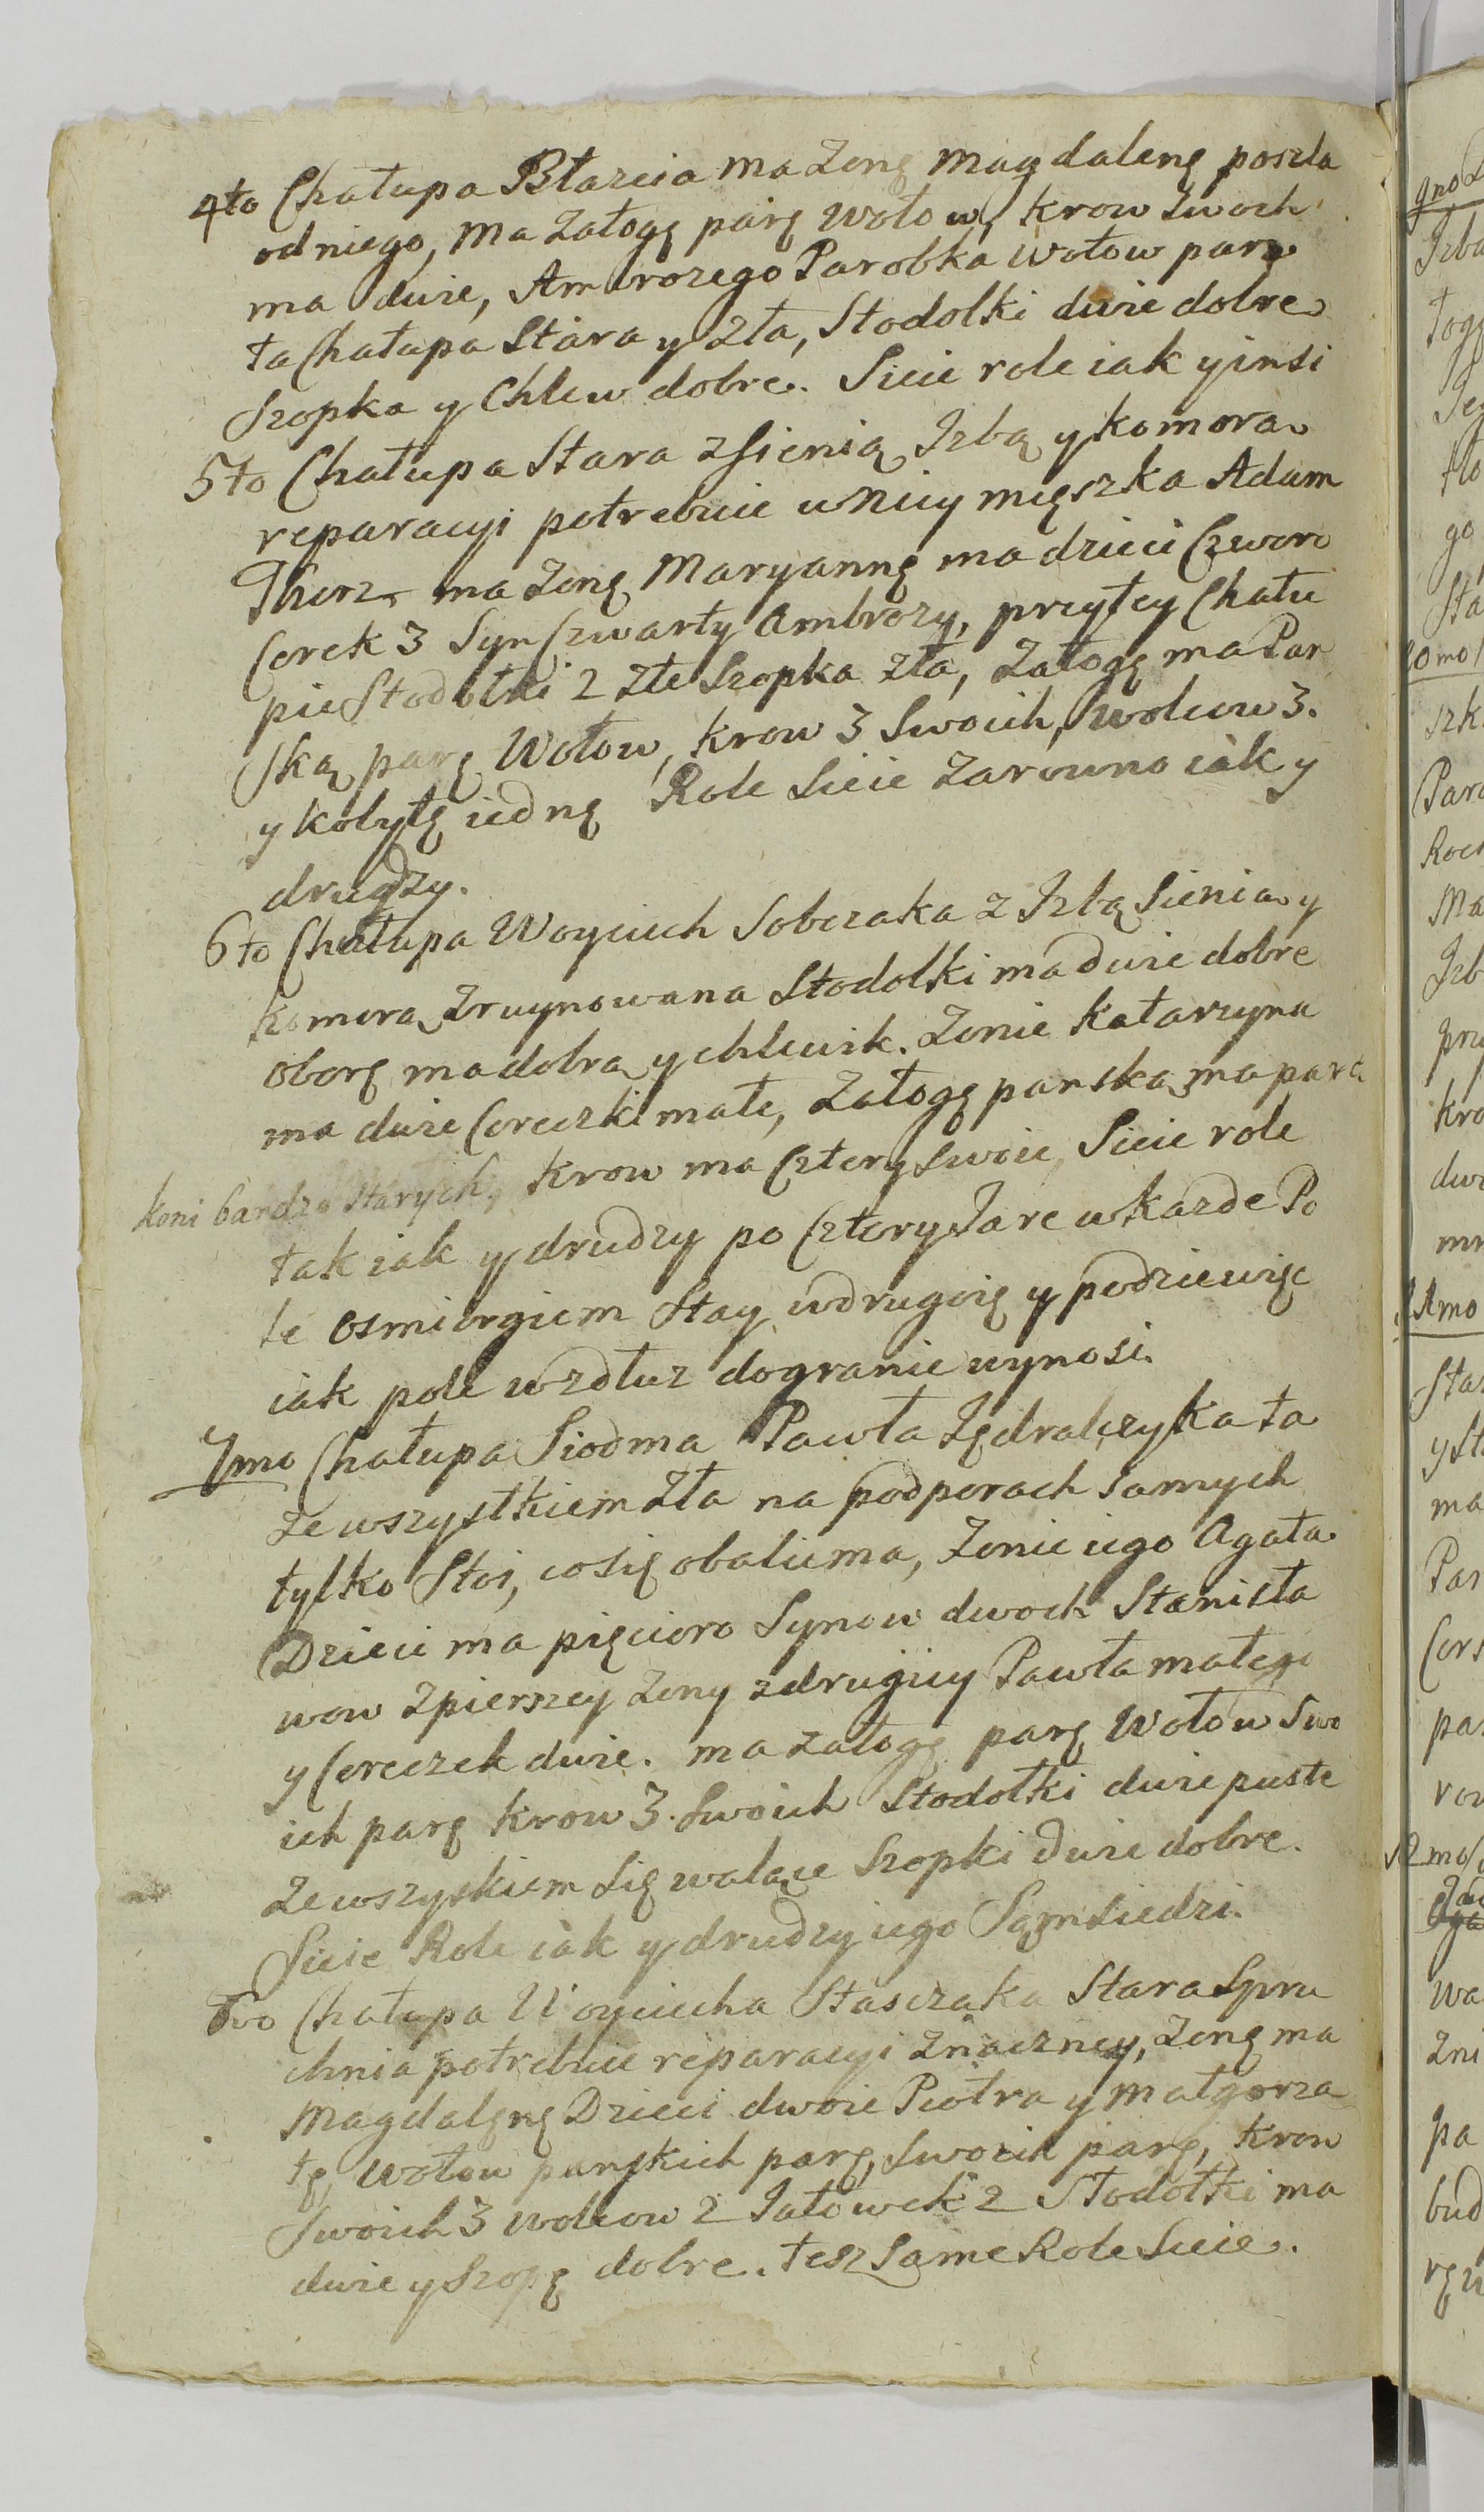 4to Chałupa Błazeia ma Zonę Magdalenę poszła
od niego, Ma Załogę parę Wołow, krow swoich
ma dwie, Ambrozego Parobka Wołow parę
ta Chałupa Stara y Zła, Stodolki dwie dobre
Szopka y Chlew dobre. Sieie role iak y insi
5to Chałupa Stara z Sienią Izbą y komora
reparacyi potrebuie w Niey mięszka Adam
Tkorz ma Zonę Maryannę ma dzieci Czworo
Corek 3 Syn Czwarty Ambrozy, przy tey Chału
pie Stodołki 2 złe Szopka zła, Załogę ma Pan
ską parę Wołow, krow 3 Swoich, Wolcow 3.
y kobyłę iednę Role Sieie Zarowno iak y
drugdzy.
6to Chałupa Woyciech Sobczaka z Izbą Sienia y
komora Zruynowana Stodolki ma dwie dobre
oborę ma dobra y chlewik. Zonie Katarzyna
ma dwie Coreczki małe, Załogę panska ma para
koni bardzo Starych, krow ma Cztery Swoie, Sieie role
tak iak y drudzy po Cztery Jare w kazde Po
le osmiorgiem Stay w drugoię y po dziewięc
iak pole wzdłuz do granic wynosi.
7mo Chałupa Siodma Pawła Jędralczyka ta
Ze wszystkiem zła na podporach samych
tylko Stoi, co się obalic ma, Zonie iego Agata
Dzieci ma pięcioro Synow dwoch Stanisła
wow z pierszey Zony z drugiey Pawła małego
y Coreczek dwie. ma załogę parę Wołow Swo
ich parę krow 3. Swoich Stodołki dwie puste
Ze wszyskiem się walące Szopki dwie dobre.
Sieie Role iak y drudzy iego Sąmsiedzi.
8vo Chałupa Woyciecha Stasczaka Stara Spru
chnia potrebuie reparacyi Znaczney, Zonę ma
Magdalęnę Dzieci dwoie Piotra y Małgorza
tę, Wołow panskich parę, Swoich parę, krow
Swoich 3 wolcow 2 Jałowek 2 Stodołki ma
dwie y Szopę dobre. tesz Same Role Sieie.